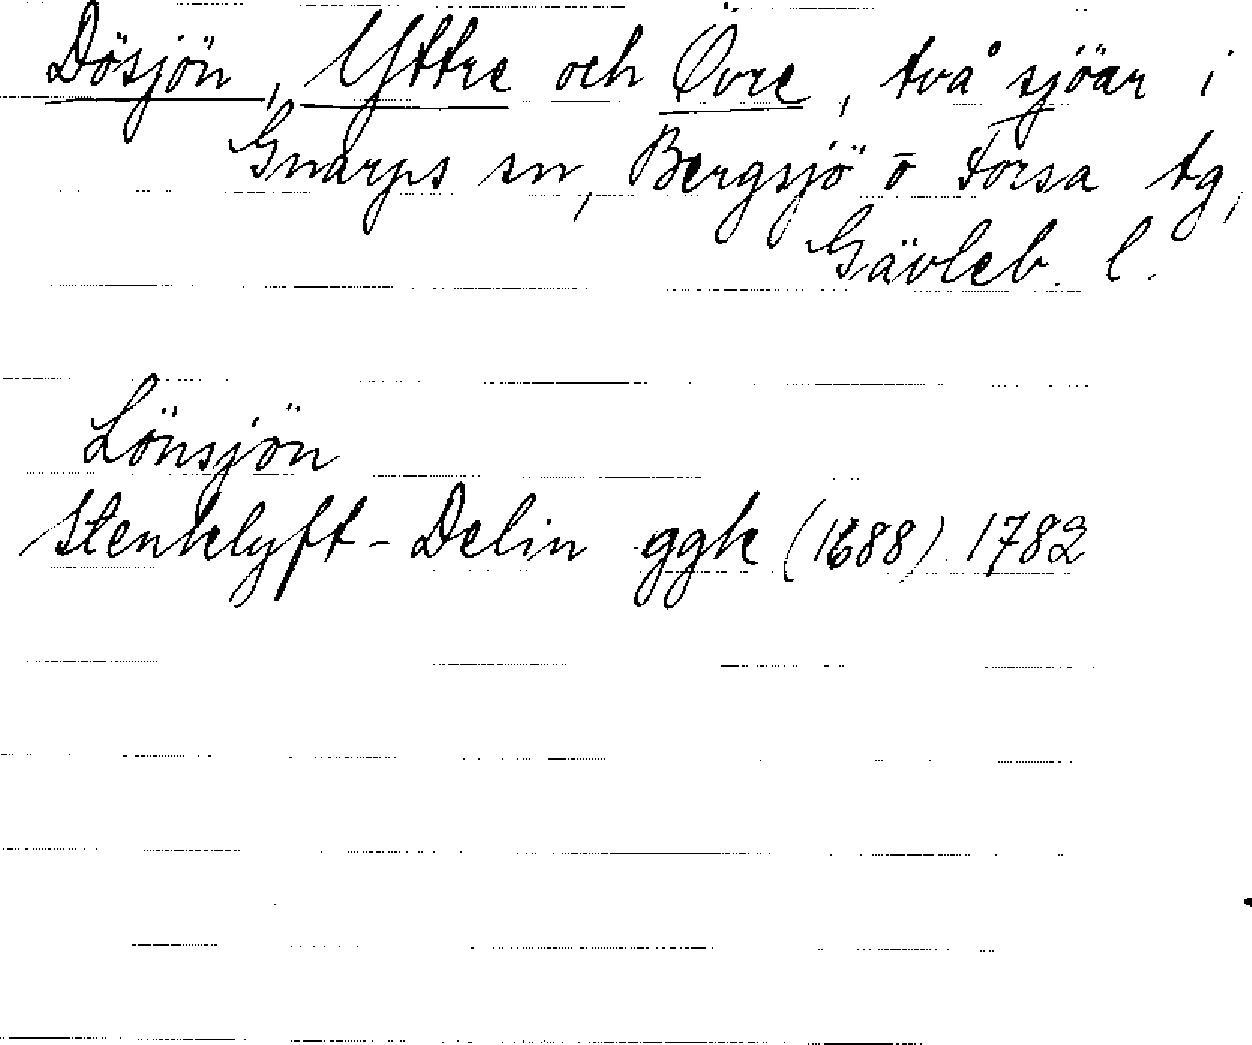 Dösjön, Yttre och Övre, två sjöar i
Gnarps sn, Bergsjö o Forsa tg,
Gävleb. l.
Lönsjön
Stenklyft-Delin ggk (1688) 1782